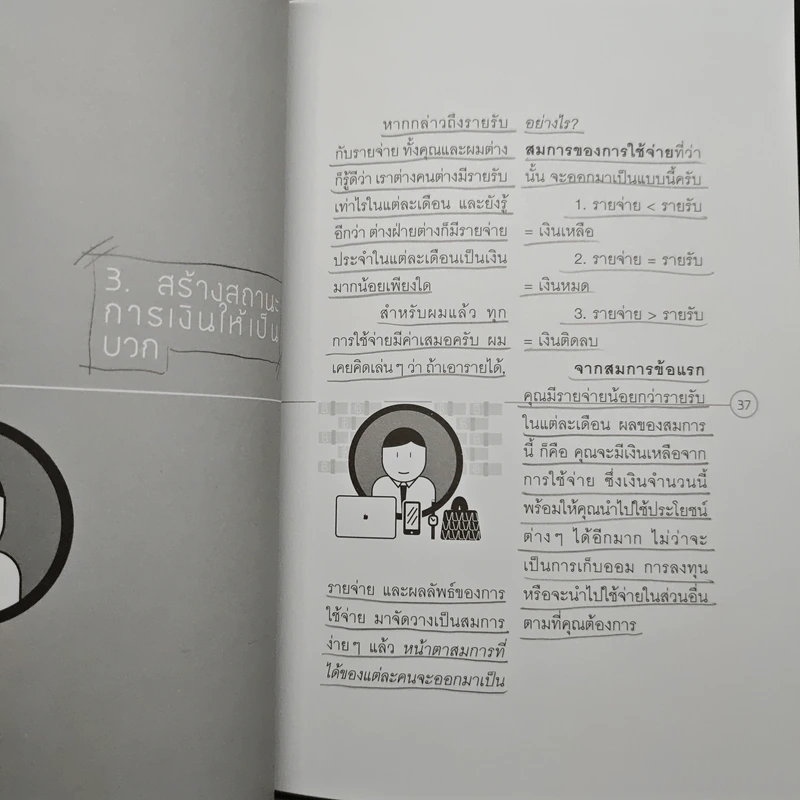 3. สร้างสถานะ
การเงินให้เป็น
บวก
หากกล่าวถึงรายรับ
กับรายจ่าย ทั้งคุณและผมต่าง
ก็รู้ดีว่า เราต่างคนต่างมีรายรับ
เท่าไรในแต่ละเดือน และยังรู้
อีกว่า ต่างฝ่ายต่างก็มีรายจ่าย
ประจำในแต่ละเดือนเป็นเงิน
มากน้อยเพียงใด
สำหรับผมแล้ว ทุก
การใช้จ่ายมีค่าเสมอครับ ผม
เคยคิดเล่นๆ ว่า ถ้าเอารายได้,
รายจ่าย และผลลัพธ์ของการ
ใช้จ่าย มาจัดวางเป็นสมการ
ง่ายๆ แล้ว หน้าตาสมการที่
ได้ของแต่ละคนจะออกมาเป็น
อย่างไร?
สมการของการใช้จ่ายที่ว่า
นั้น จะออกมาเป็นแบบนี้ครับ
1. รายจ่าย < รายรับ
= เงินเหลือ
2. รายจ่าย = รายรับ
= เงินหมด
3. รายจ่าย > รายรับ
= เงินติดลบ
จากสมการข้อแรก
คุณมีรายจ่ายน้อยกว่ารายรับ
ในแต่ละเดือน ผลของสมการ
นี้ ก็คือ คุณจะมีเงินเหลือจาก
การใช้จ่าย ซึ่งเงินจำนวนนี้
พร้อมให้คุณนำไปใช้ประโยชน์
ต่างๆ ได้อีกมาก ไม่ว่าจะ
เป็นการเก็บออม การลงทุน
หรือจะนำไปใช้จ่ายในส่วนอื่น
ตามที่คุณต้องการ
37